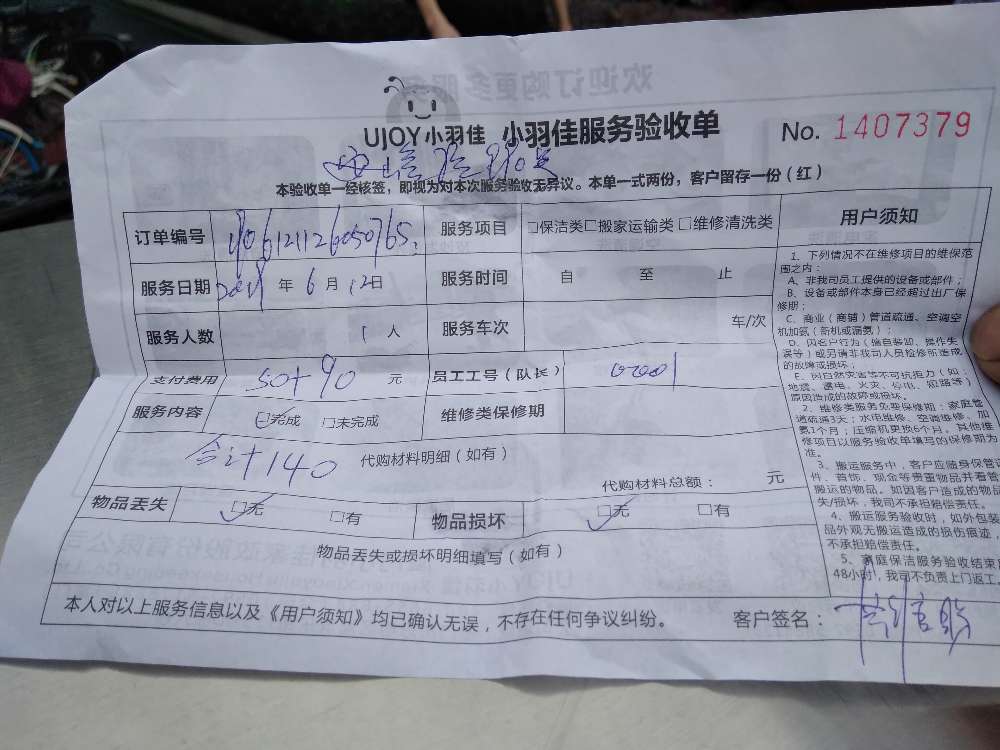 UJOY小羽佳 小羽佳服务验收单 No. 1407379
本验收单一经核签，即视为对本次服务验收无异议。本单一式两份，客户留存一份（红）
订单编号 服务项目 □保洁类□搬家运输类 □维修清洗类
服务日期 年 6 月 12 日 服务时间 自 至 止
服务人数 1 人 服务车次 车/次
支付费用 50+90 元 员工工号（队长）
服务内容 □完成 □未完成 维修类保修期
合计140 代购材料明细（如有）
代购材料总额： 元
物品丢失 □无 □有 物品损坏 □无 □有
物品丢失或损坏明细填写（如有）
本人对以上服务信息以及《用户须知》均已确认无误，不存在任何争议纠纷。 客户签名：
用户须知
1、下列情况不在维修项目的维保范
围之内：
A、非我司员工提供的设备或部件；
B、设备或部件本身已经超过出厂保
修期；
C、商业（商铺）管道疏通、空调空
机加氨（新机或漏氨）；
D、因客户行为（擅自装卸、操作失
误等）或另请非我司人员检修所造成
的故障或损坏；
E、因自然灾害等不可抗拒力（如：
地震、雷电、火灾、停电、短路等）
原因造成的故障或损坏。
2、维修类服务免费保修期：家庭管
道疏通3天；水电维修、空调维修、加
氨1个月；压缩机更换6个月。其他维
修项目以服务验收单填写的保修期为
准。
3、搬运服务中，客户应随身保管证
件、首饰、现金等贵重物品并看管
搬运的物品。如因客户造成的物品
失/损坏，我司不承担赔偿责任。
4、搬运服务验收时，如外包装
品外观无搬运造成的损伤痕迹，
不承担赔偿责任。
5、家庭保洁服务验收结束
48小时，我司不负责上门返工